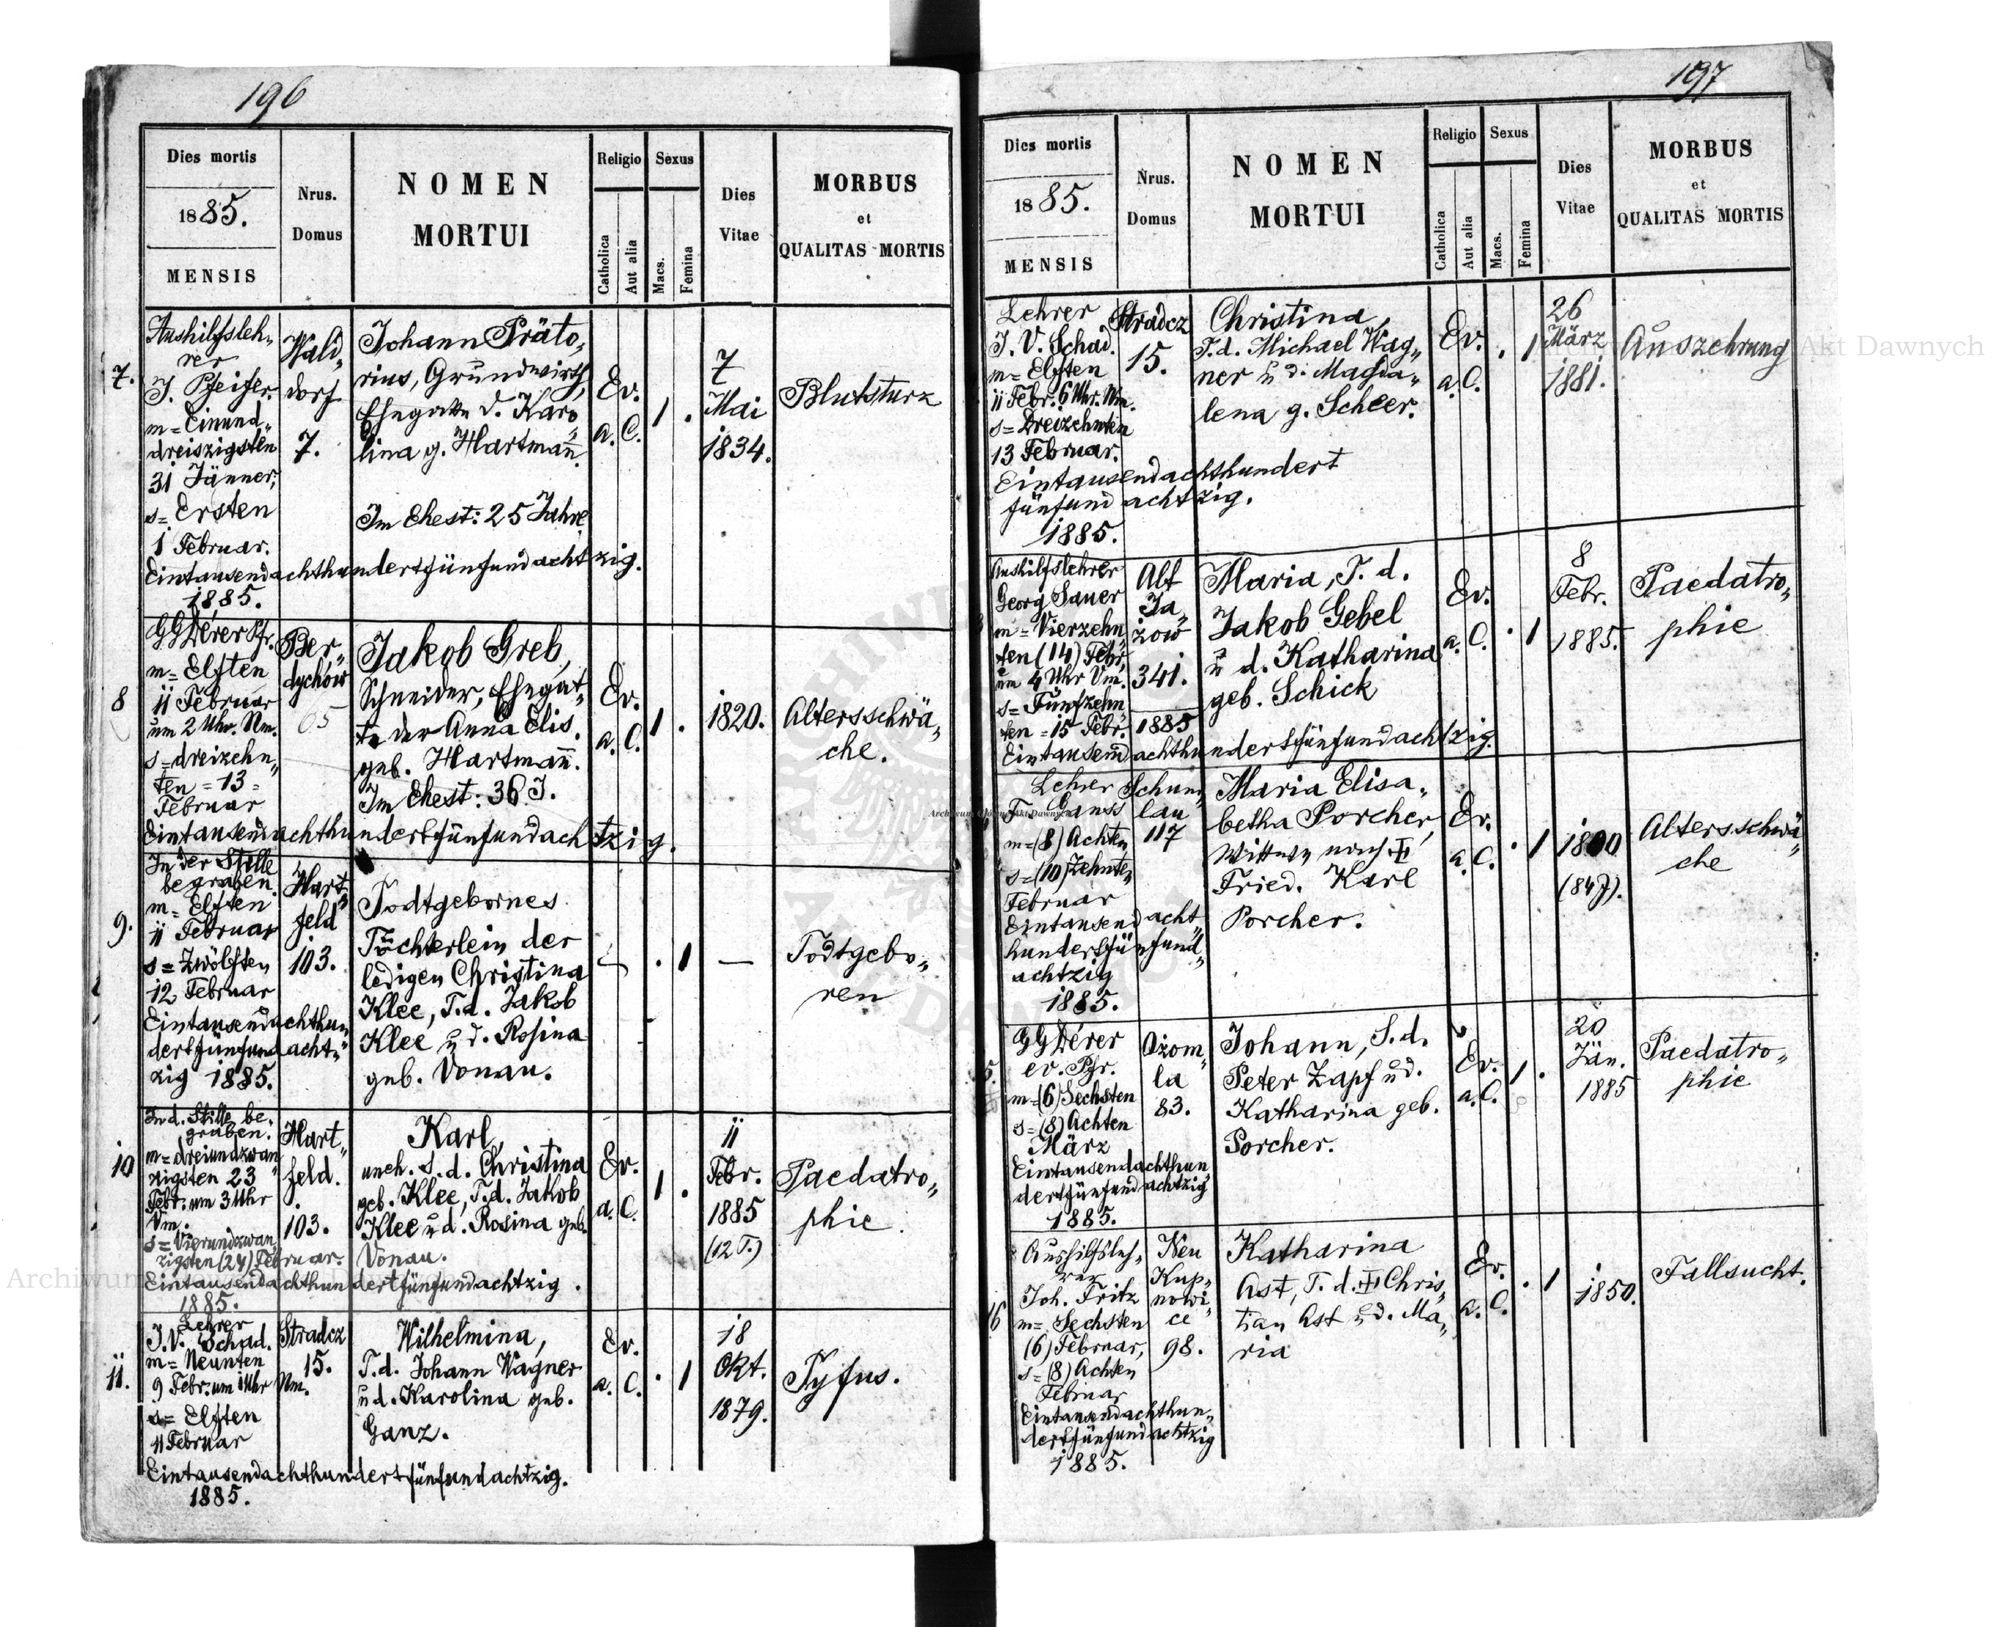 196
Dies mortis
1885.
MENSIS
Nrus.
Domus
NOMEN
MORTUI
Religio
Catholica
Aut alia
Sexus
Macs.
Femina
Dies
Vitae
MORBUS
et
QUALITAS MORTIS
7.
Aushilfsleh„
rer
J. Pfeifer.
m = Einund„
dreiszigsten
31 Jänner,
s = Ersten
1 Februar.
Eintausendachthundertfünfundachtzig.
1885.
Wald„
dorf
7.
Johann Präto„
rius, Grundwirth,
Ehegatte d. Karo„
lina g. Hartmañ.
Im Ehest: 25 Jahre
Ev.
a. C.
1 .
7
Mai
1834.
Blutsturz
8
GGDérer Pfr.
m = Elften
11 Februar
um 2 Uhr. Nm.
s = dreizehn„
ten = 13 =
Februar
Eintausendachthundertfünfundachtzig.
Ber„
dychów
65
Jakob Greb,
Schneider, Ehegat„
te der Anna Elis.
geb. Hartmañ.
Im Ehest: 36 J.
Ev.
a. C.
1 .
1820.
Altersschwä„
che.
9.
In der Stille
begraben.
m = Elften
11 Februar
s = Zwölften
12 Februar
Eintausendachthun„
dertfünfundacht„
zig 1885.
Hart„
feld
103.
Todtgebornes
Töchterlein der
ledigen Christina
Klee, T. d. Jakob
Klee u d. Rosina
geb. Vonau.
—
. 1
—
Todtgebo„
ren
10
In d. Stille be„
graben.
m = dreiundzwan„
zigsten 23
Febr. um 3 Uhr
Vm.
s = Vierundzwan„
zigsten (24) Februar.
Eintausendachthundertfünfundachtzig.
1885.
Hart„
feld.
103.
Karl,
uneh. S. d. Christina
geb. Klee, T. d. Jakob
Klee u d. Rosina geb.
Vonau.
Ev.
a. C.
1 .
11
Febr.
1885
(12 T.)
Paedatro„
phie.
11.
Lehrer
J. V. Schad.
m = Neunten
9 Febr. um 1 Uhr Nm.
s = Elften
11 Februar
Eintausendachthundertfünfundachtzig.
1885.
Stradcz
15.
Wilhelmina,
T. d. Johann Wagner
u d. Karolina geb.
Ganz.
Ev.
a. C.
. 1
18
Okt.
1879.
Tyfus.
197
Dies mortis
1885.
MENSIS
Nrus.
Domus
NOMEN
MORTUI
Religio
Catholica
Aut alia
Sexus
Macs.
Femina
Dies
Vitae
MORBUS
et
QUALITAS MORTIS
Lehrer
J. V. Schad.
m = Elften
11 Febr. 6 Uhr. Nm.
s = Dreizehnten
13 Februar.
Eintausendachthundert
fünfundachtzig.
1885.
Stradcz
15.
Christina,
T. d. Michael Wag„
ner u d. Magda„
lena g. Scheer.
Ev.
a. C.
. 1
26
März
1881.
Auszehrung
Aushilfslehrer
Georg Sauer
m = Vierzehn„
ten (14) Febr,
um 4 Uhr Vm.
s = Fünfzehn
ten = 15 Febr. 1885
Eintausendachthundertfünfundachtzig.
Alt
Ja„
zow
341.
Maria, T. d.
Jakob Gebel
u d. Katharina
geb. Schick
Ev.
a. C.
. 1
8
Febr.
1885.
Paedatro„
phie
Lehrer
F. Ganss
m = (8) Achten
s = (10) Zehnte„
Februar
Eintausendacht„
hundertfünfund„
achtzig
1885.
Schum„
lau
117
Maria Elisa„
betha Porcher,
Wittwe nach
Fried. Karl
Porcher.
Ev.
a. C.
. 1
1800
(84 J).
Altersschwä„
che
5.
GGDérer
ev. Pfr.
m = (6) Sechsten
s = (8) Achten
März
Eintausendachthun„
dertfünfundachtzig
1885.
Ozom„
la
83.
Johann, S. d.
Peter Zapf u d.
Katharina geb.
Porcher.
Ev.
a. C.
1 .
20
Jän.
1885
Paedatro„
phie
16
Aushilfsleh„
rer
Joh. Fritz
m = Sechsten
(6) Februar,
s = (8) Achten
Februar
Eintausendachthun„
dertfünfundachtzig
1885.
Neu
Kup„
nowi„
ce
98.
Katharina
Ast, T. d. Chris„
tian Ast u d. Ma„
ria
Ev.
a. C.
. 1
1850.
Fallsucht.